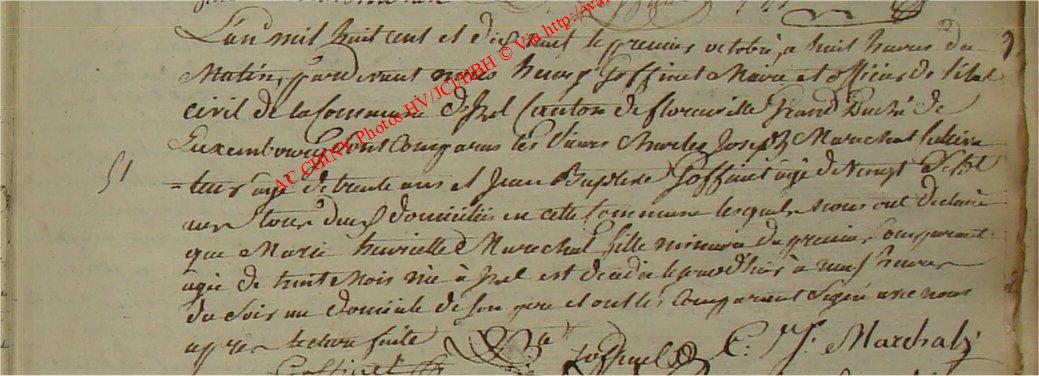 L'an mil huit cent et dix huit le premier octobre, a huit heures du
Matin, pardevant nous henry Goffinet Maire et officier de l'état
civil de la Commune d'Izel Canton de florenville Grand Duché de
Luxembourg sont Comparus les sieurs Charles Joseph Marechal Cultiva
51 =teur âgé de trente ans et Jean Baptiste Goffinet âgé de vingt Sept
ans tous deux domiciliés en cette Commune lesquels nous ont declaré
que Marie henriette Marechal fille mineure du premier Comparant
agée de huit Mois née à Izel est decedée le jour d'hier à neuf heures
du soir au domicile de son pere et ont les Comparant Signé avec nous
après lecture faite
Goffinet C. J. Marchal
Goffinet
AC CHINY Photos HV/JCI/HBH © Via http://wa